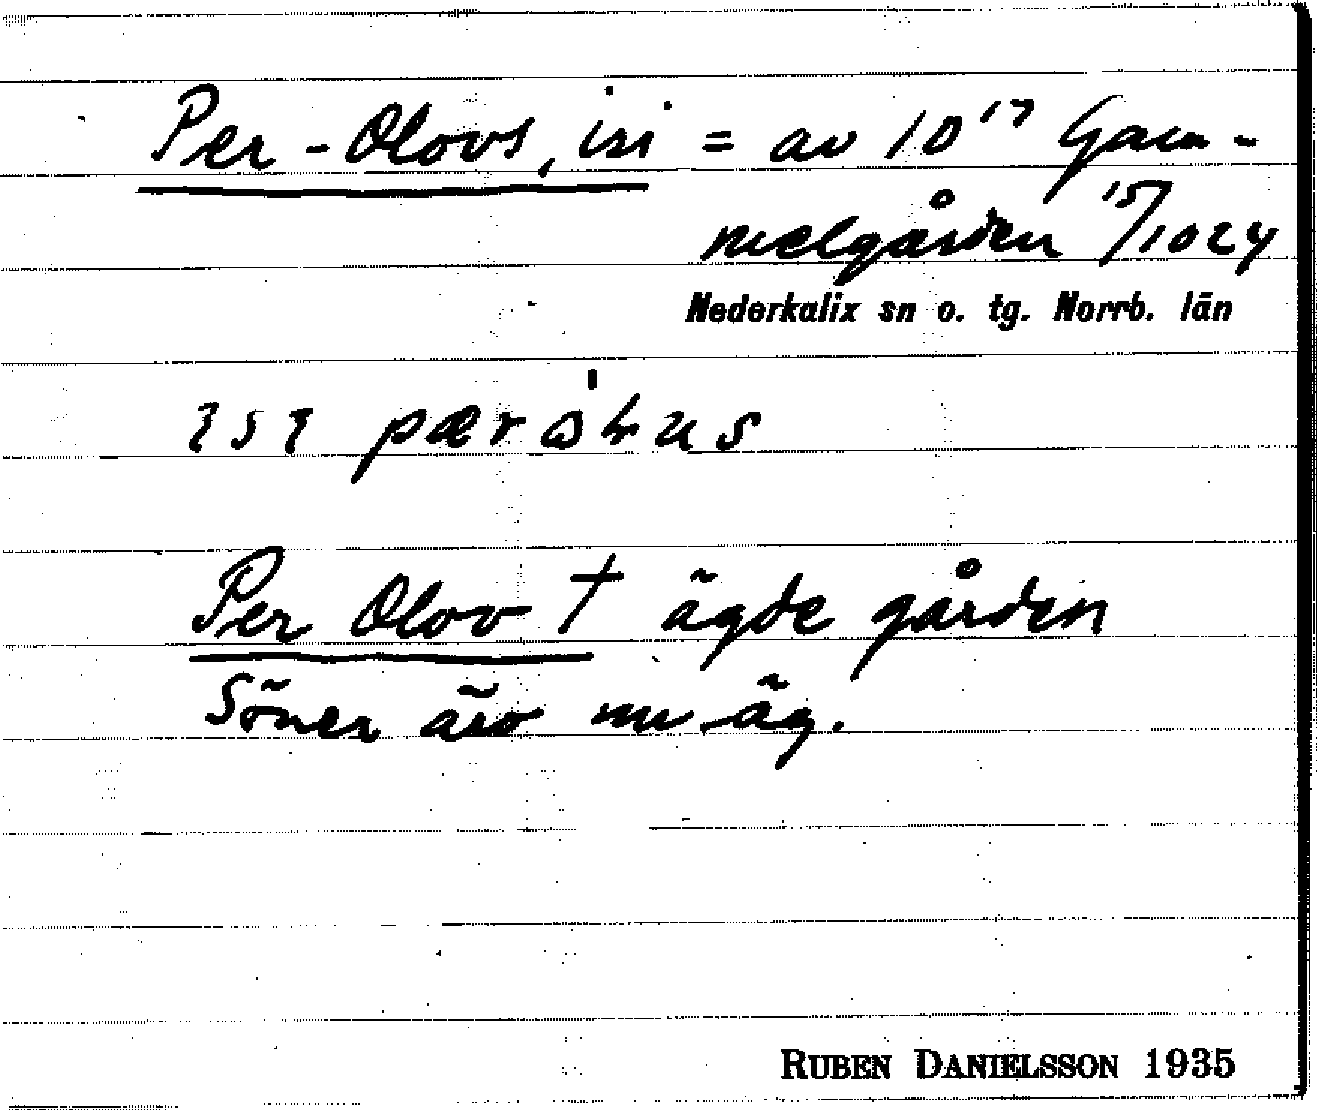 Per-Olovs, isi = av 10¹⁷ Gam-
melgården 15/1024
Nederkalix sn o. tg. Norrb. län
ısı pær
Per Olov † ägde gården
Söner äro nu äg.
RUBEN DANIELSSON 1935